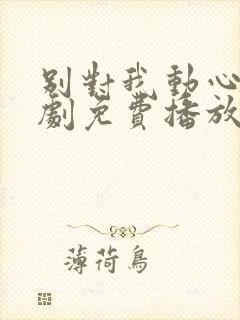 別對我動心
劇免費播放
薄荷鳥